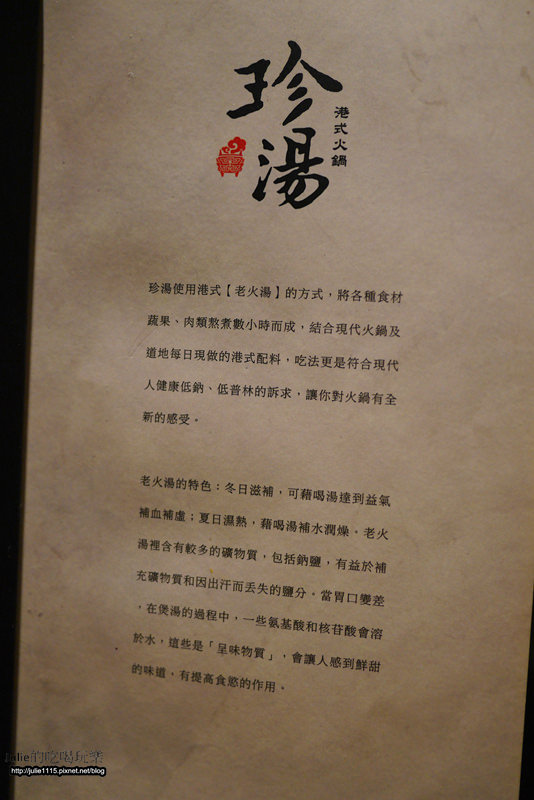 珍湯
港式火鍋
珍湯使用港式【老火湯】的方式，將各種食材
蔬果、肉類熬煮數小時而成，結合現代火鍋及
道地每日現做的港式配料，吃法更是符合現代
人健康低鈉、低普林的訴求，讓你對火鍋有全
新的感受。
老火湯的特色：冬日滋補，可藉喝湯達到益氣
補血補虛；夏日濕熱，藉喝湯補水潤燥。老火
湯裡含有較多的礦物質，包括鈉鹽，有益於補
充礦物質和因出汗而丟失的鹽分。當胃口變差
，在煲湯的過程中，一些氨基酸和核苷酸會溶
於水，這些是「呈味物質」，會讓人感到鮮甜
的味道，有提高食慾的作用。
Julie的吃喝玩樂
http://julie1115.pixnet.net/blog